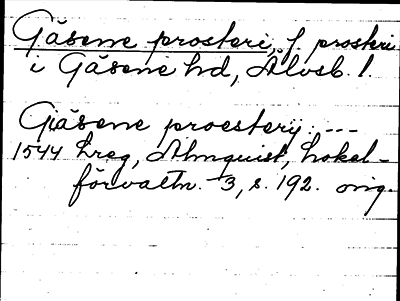 Gäsene prosteri, f. prosteri
i Gäsene hd, Älvsb. l.
Giäsene proesterij ---
1544 hreg, Almquist, Lokal-
förvaltn. 3, s. 192. orig.